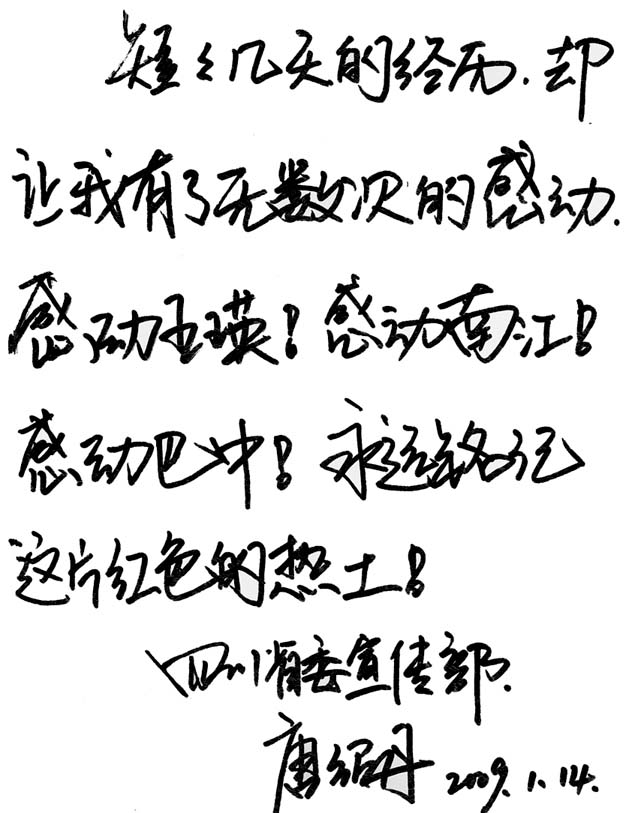 短々几天的经历.却
让我有了无数次的感动.
感动王瑛!感动南江!
感动巴中!永远铭记
这片红色的热土!
四川省委宣传部.
唐绍丹 2009.1.14.